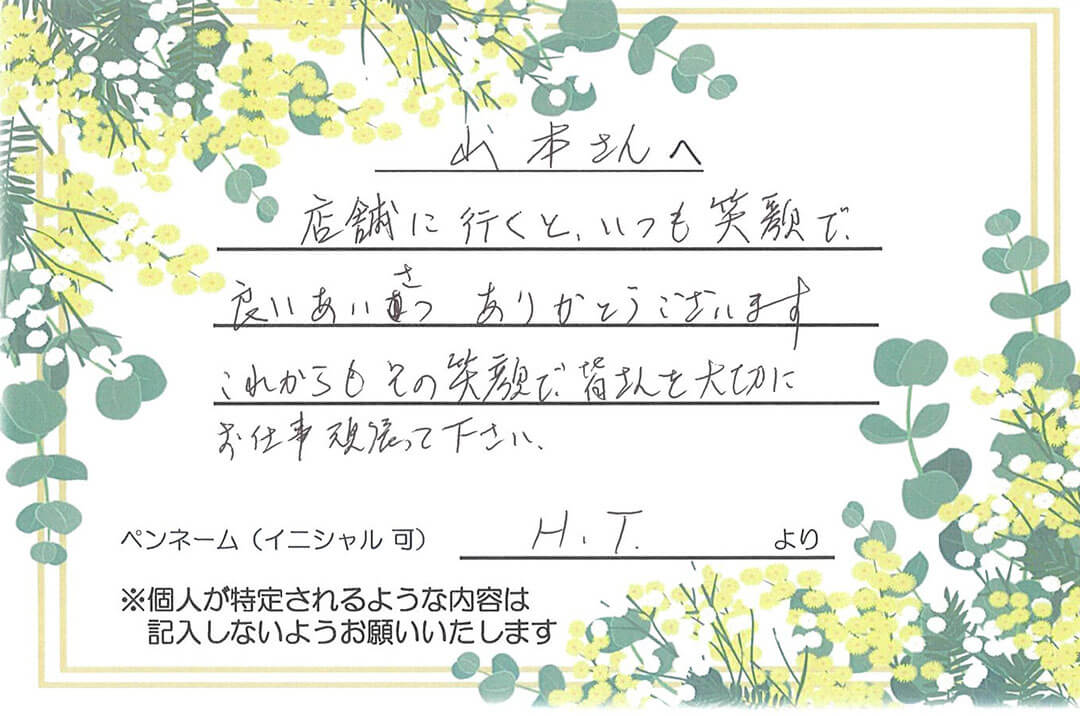 山本さんへ
店舗に行くと、いつも笑顔で、
良いあいさつ ありがとうございます
これからもその笑顔で、皆さんを大切に
お仕事頑張って下さい、
ペンネーム（イニシャル 可） H.T. より
※個人が特定されるような内容は
記入しないようお願いいたします